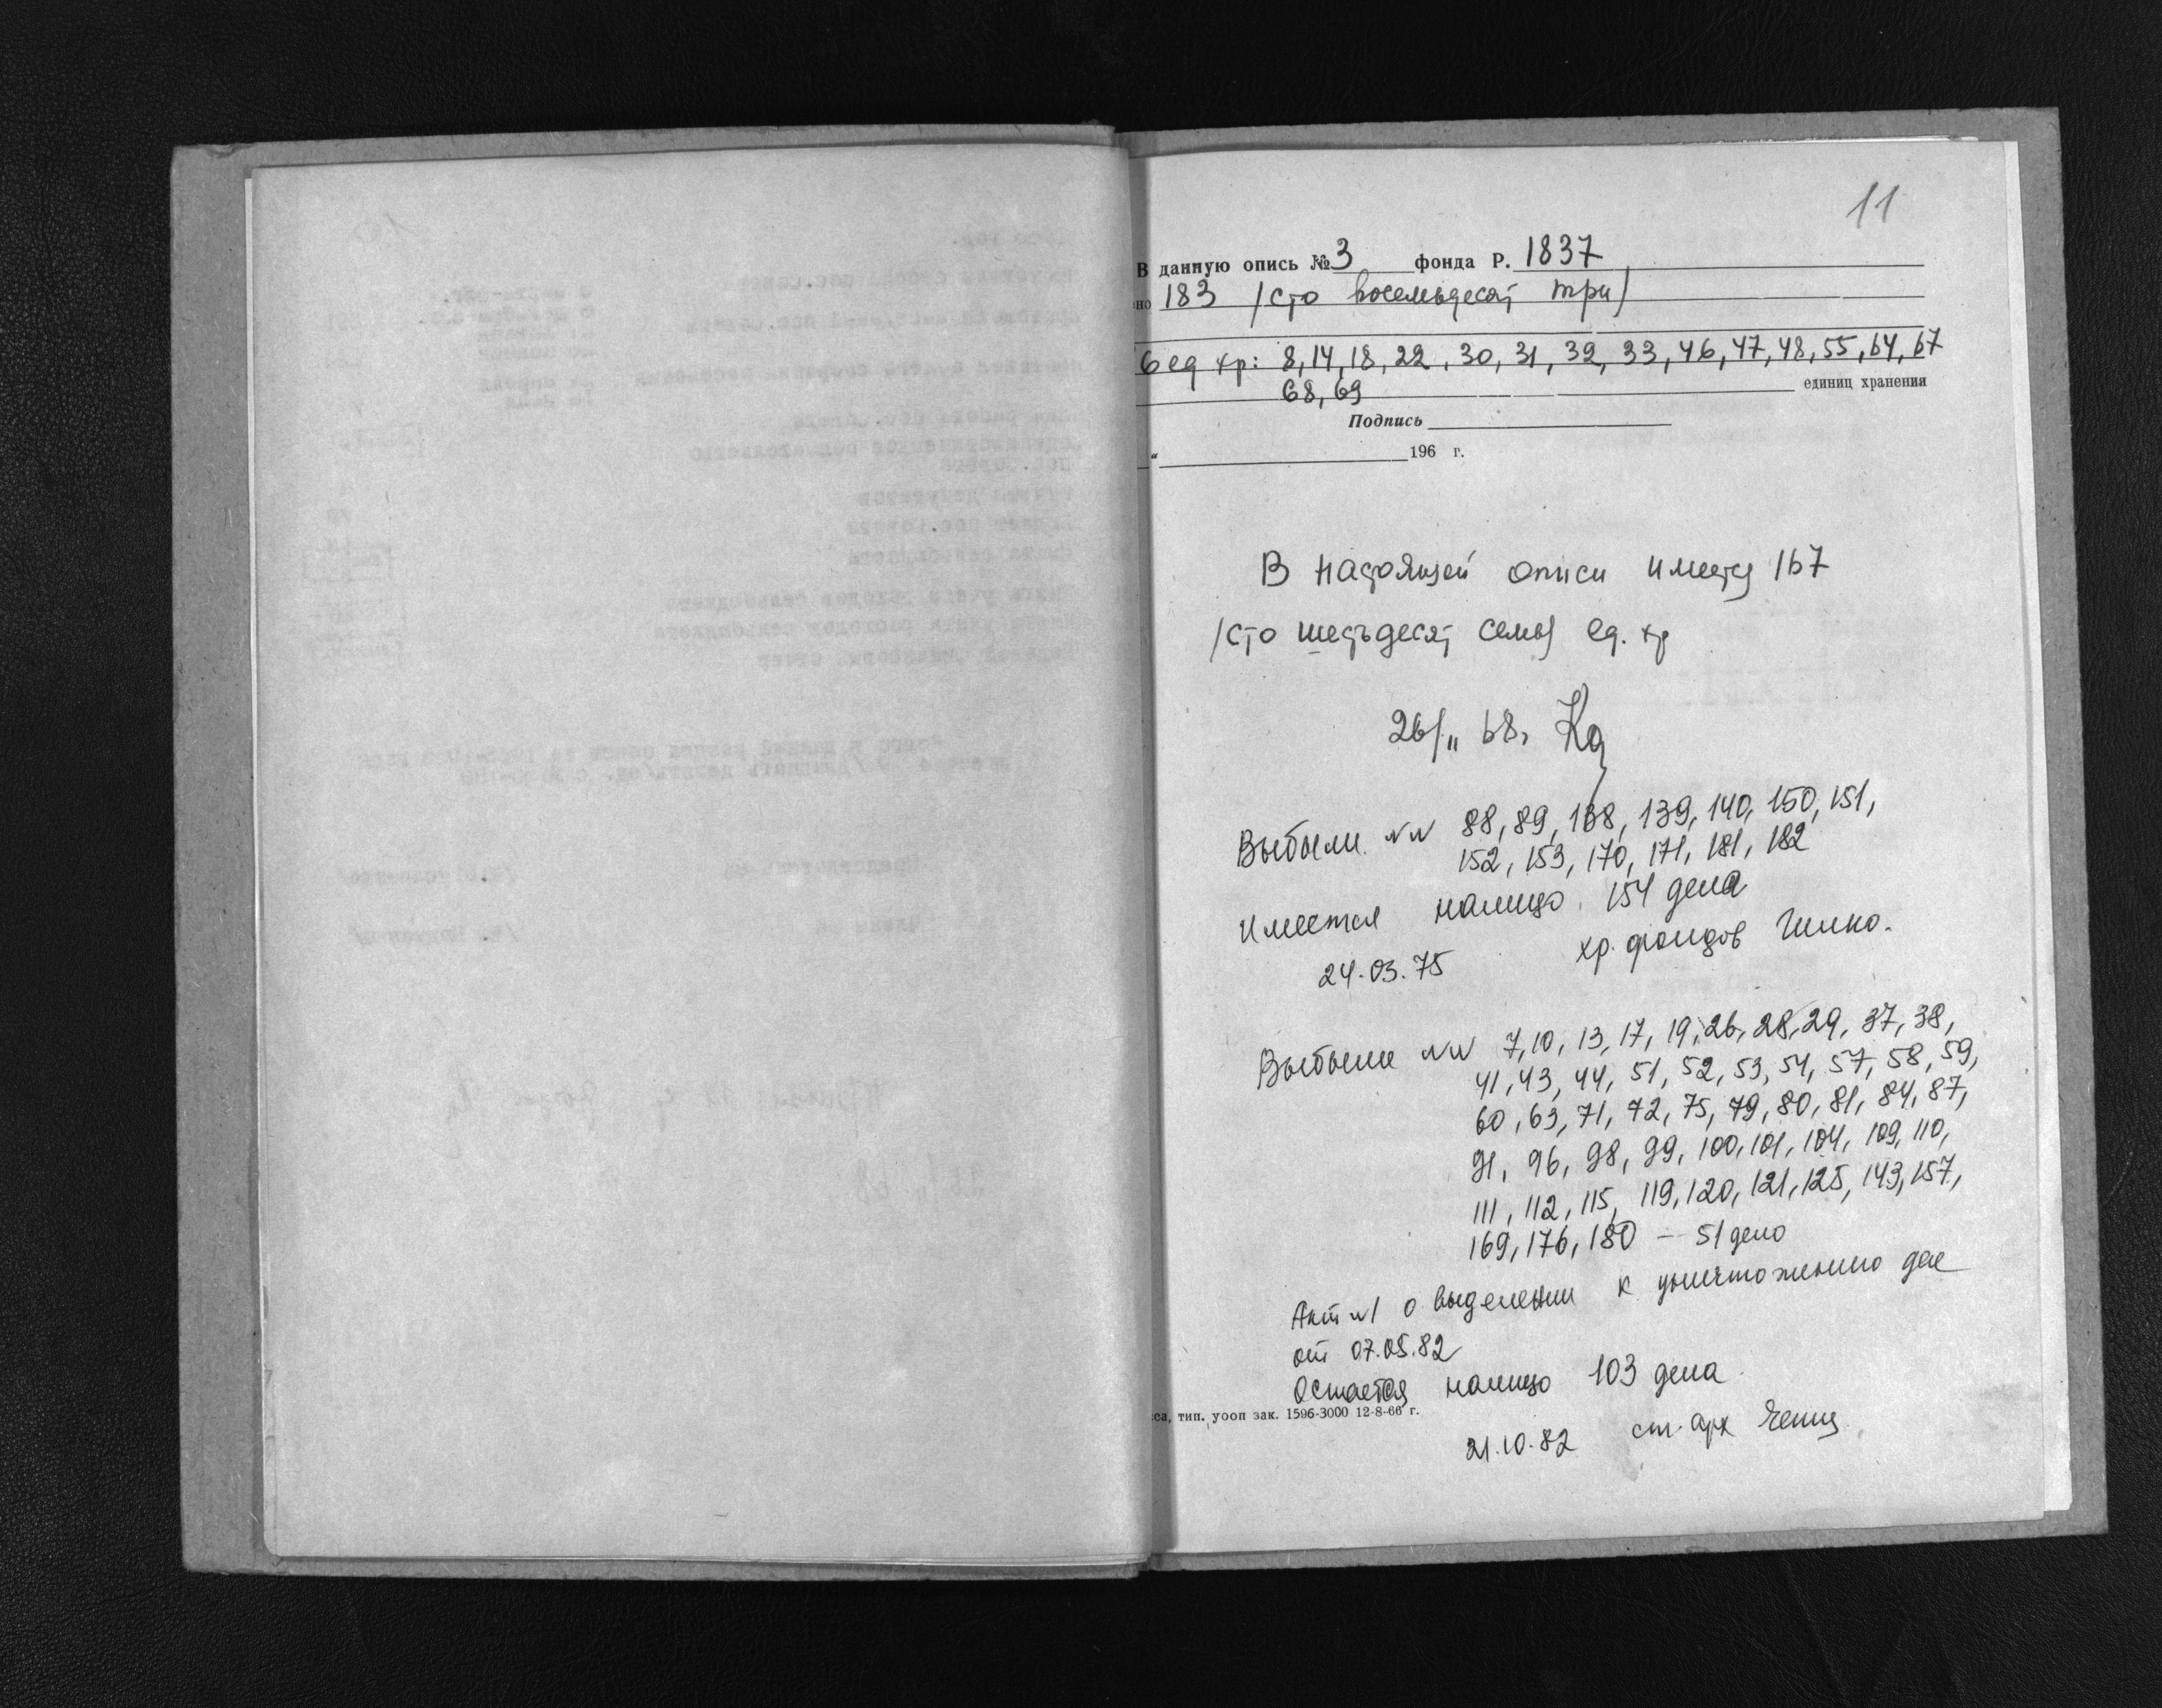 11
В данную опись № 3 фонда Р. 1837
но 183 /сто восемьдесят три/
б ед хр: 8, 14, 18, 22, 30, 31, 32, 33, 46, 47, 48, 55, 64, 67
68, 69 единиц хранения
Подпись
“ 196 г.
В настоящей описи имеется 167
/сто шестьдесят семь/ ед. хр
26/II 68г
Выбыли №№ 88, 89, 138, 139, 140, 150, 151,
152, 153, 170, 171, 181, 182
Имеется налицо 154 дела
24.03.75 хр. фондов
Выбыли №№ 7, 10, 13, 17, 19, 26, 28, 29, 37, 38,
41, 43, 44, 51, 52, 53, 54, 57, 58, 59,
60, 63, 71, 72, 75, 79, 80, 81, 84, 87,
91, 96, 98, 99, 100, 101, 104, 109, 110,
111, 112, 115, 119, 120, 121, 125, 143, 157,
169, 176, 180 – 51 дело
Акт №1 о выделении к уничтожению дел
от 07.05.82
Остается налицо 103 дела
сса, тип. уооп зак. 1596-3000 12-8-66 г.
21.10.82 ст. арх